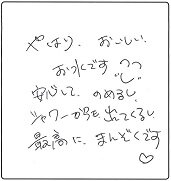 やはり、おいしい
お水です
安心して、のめるし、
シャワーからも出てくるし
最高に、まんぞくです
♡